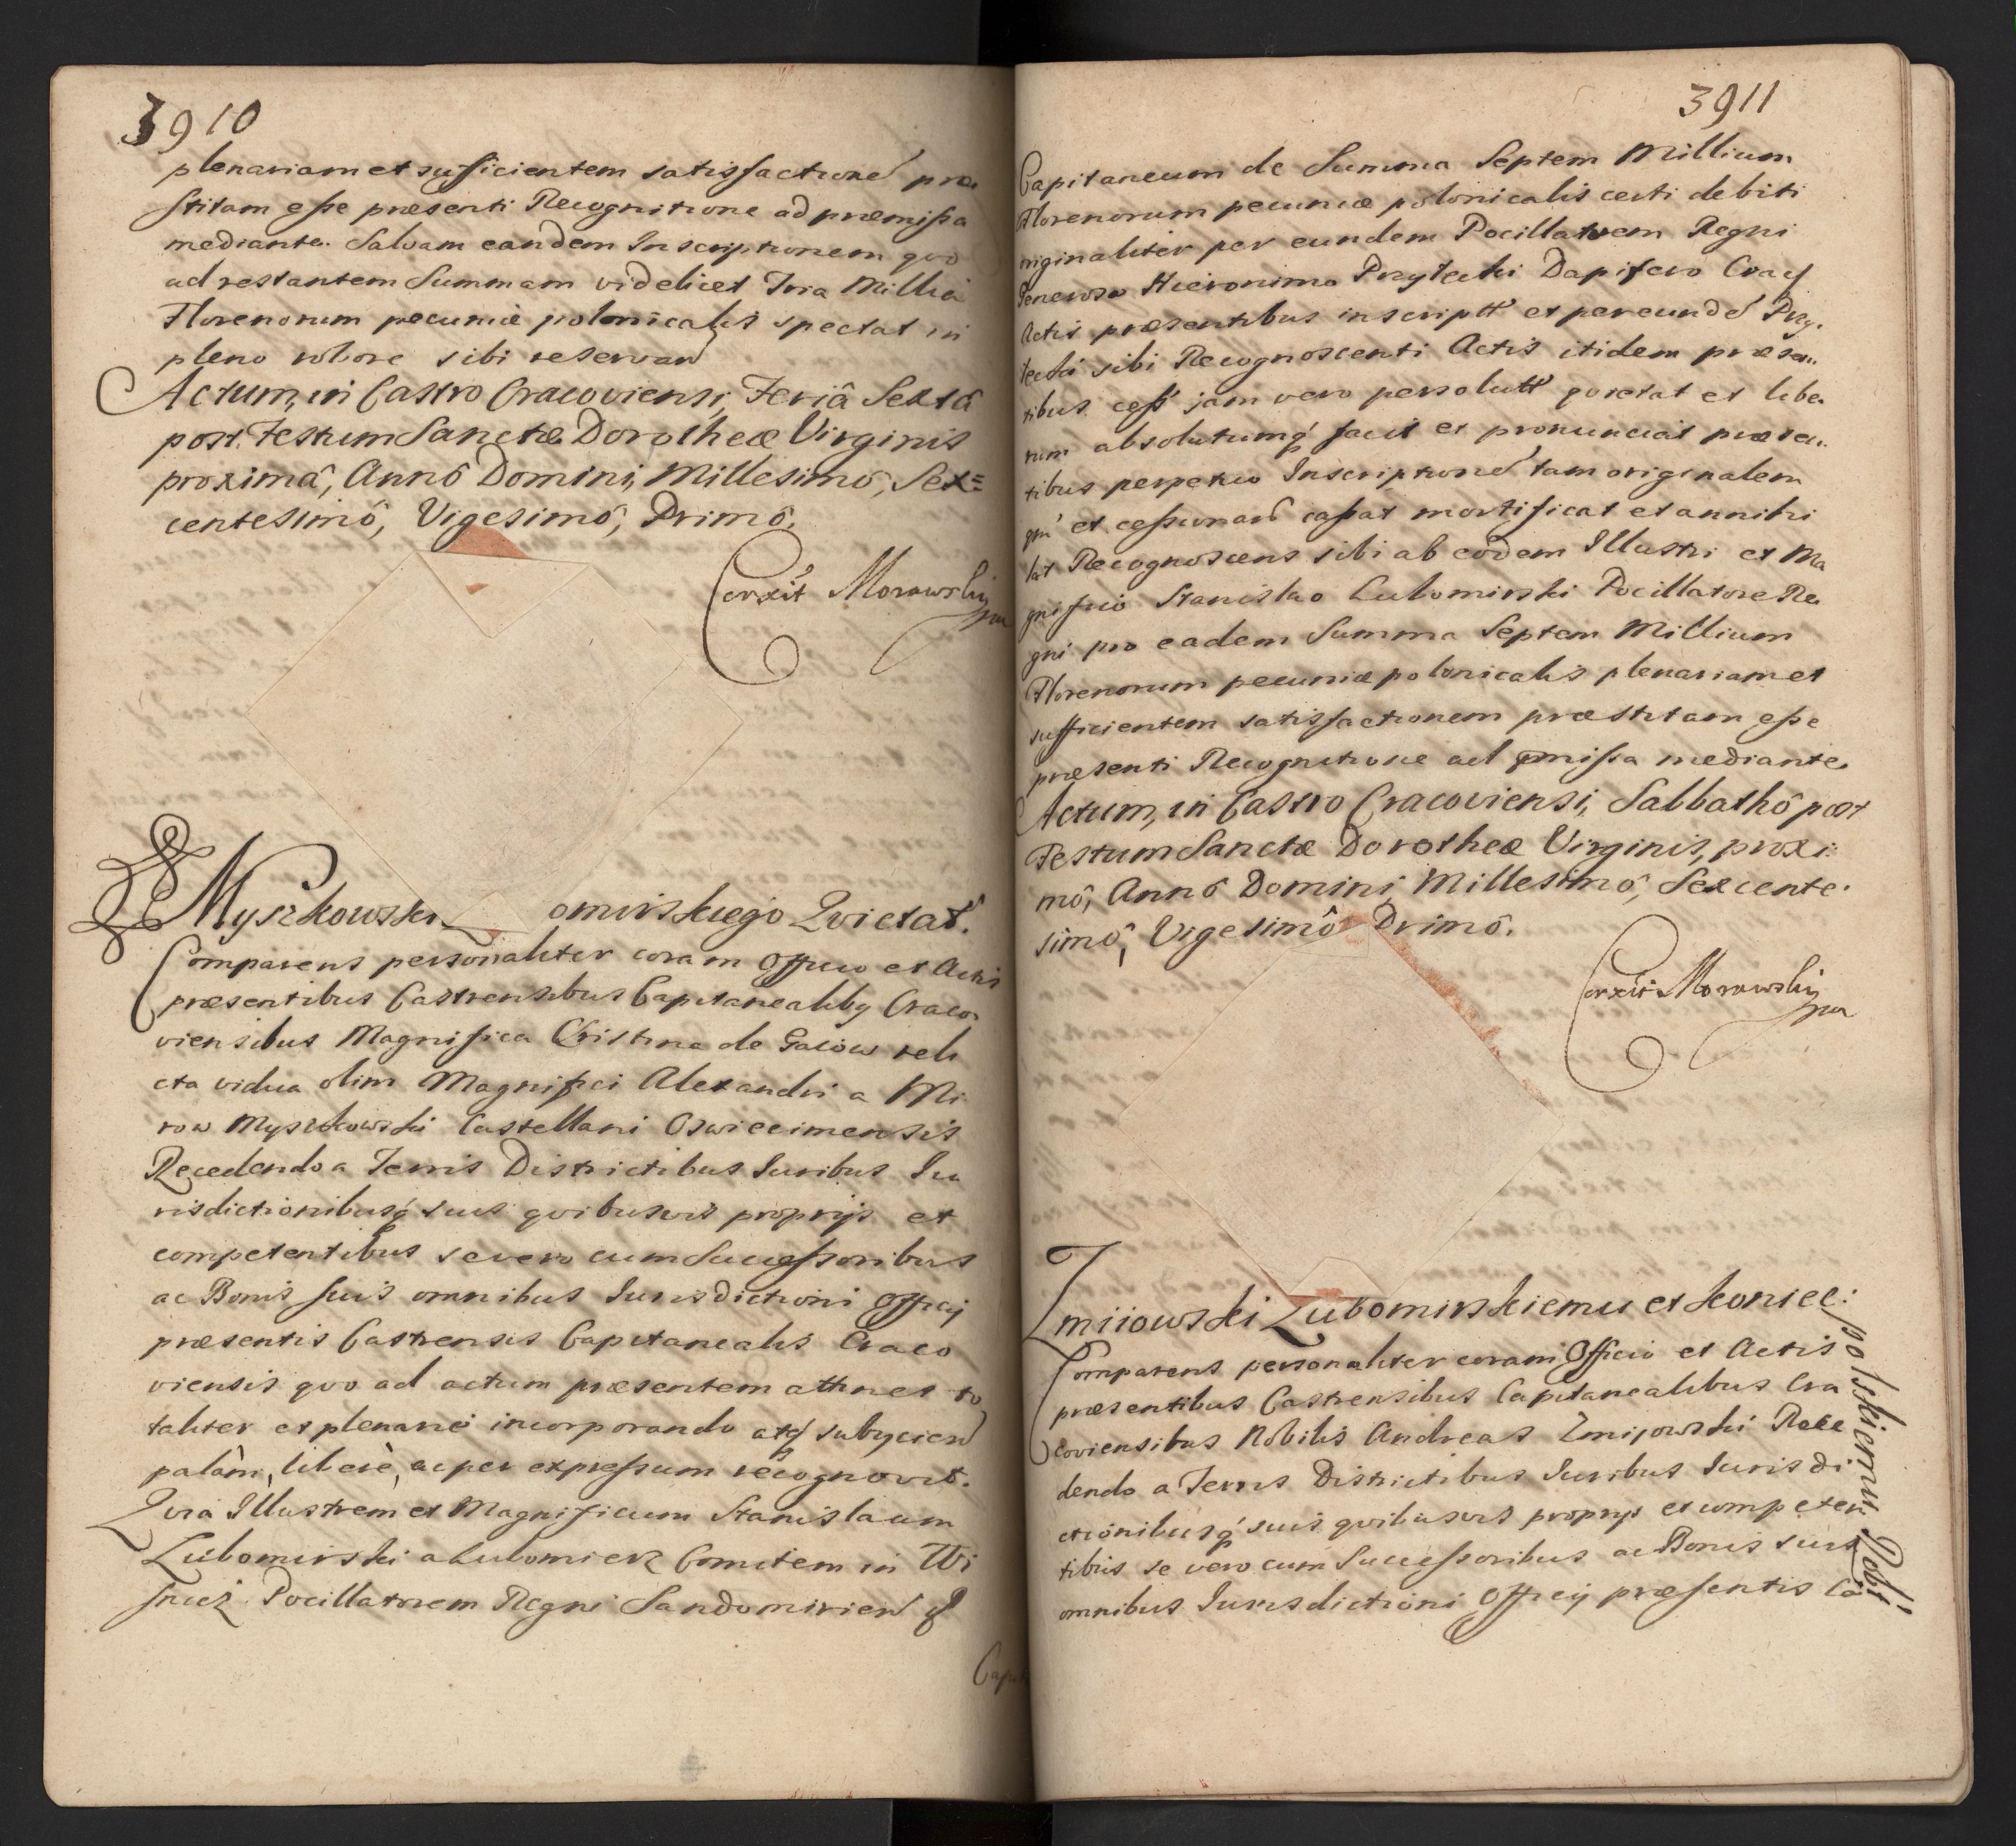 3910
plenariam et sufficientem satisfactioné præ
stitam esse præsenti Recognitione ad præmissa
mediante. Salvam eandem Inscriptionem quo
ad restantem Summam videlicet Tria Millia
Florenorum pecuniæ polonicalis spectat in
pleno robore sibi reservan
Actum, in Castro Cracoviensi, Feriâ Sextâ
post Festum Sanctæ Dorotheæ Virginis
proximâ, Annô Domini, Millesimô, Sex=
centesimô, Vigesimô, Primô.
Corxit Morawski
mp
Myszkowska omirskiego Qvietat.
Comparens personaliter coram Officio et Actis
præsentibus Castrensibus Capitanealibg Craco
viensibus Magnifica Christina de Gacow reli
cta vidua olim Magnifici Alexandri a Mi
row Myszkowski Castellani Oswiecimensis
Recedendo a Terris Districtibus Iuribus Iu
risdictionibusq suis qvibusvis proprijs et
competentibus se vero cum Successoribus
ac Bonis suis omnibus Iurisdictioni Officij
præsentis Castrensis Capitanealis Craco
viensis qvo ad actum præsentem attinet to
taliter et plenarie incorporando atq subijcien
palàm, liberè, ac per expressum recognovit.
Qvia Illustrem et Magnificum Stanislaum
Lubomirski a Lubomierz Comitem in Wi
snicz Pocillatorem Regni Sandomirien
Capi
3911
Capitaneum de Summa Septem Millium
Florenorum pecuniæ polonicalis certi debiti
originaliter per eundem Pocillatorem Regni
Generoso Hieronimo Przyłecki Dapifero Crac
Actis præsentibus inscriptt et per eundé Przy.
łecki sibi Recognoscenti Actis itidem præsen.
tibus cess jam vero persolutt qvietat et libe.
rum absolutumq facit et pronunciat præsen.
tibus perpetuo Inscriptioné tam originalem
qm et cessionar cassat mortificat et annihi
lat Recognoscens sibi ab eodem Illustri et Ma
gnifico Stanislao Lubomirski Pocillatore Re
gni pro eadem Summa Septem Millium
Florenorum pecuniæ polonicalis plenariam et
sufficientem satisfactionem præstitam esse
præsenti Recognitione ad pmissa mediante.
Actum, in Castro Cracoviensi, Sabbathô post
Festum Sanctæ Dorotheæ Virginis, proxi:
mô, Annô Domini, Millesimô, Sexcente.
simô, Vigesimô Primô.
Corxit Morawski
mp
Zmiiowski Lubomirskiemu et Koniec:
polskiemu Obł
Comparens personaliter coram Officio et Actis
præsentibus Castrensibus Capitanealibus Cra
coviensibus Nobilis Andreas Zmijowski Rece
dendo a Terris Districtibus Iuribus Iurisdi
ctionibusq suis qvibusvis proprijs et competen
tibus se vero cum Successoribus ac Bonis suis
omnibus Iurisdictioni Officij præsentis Ca